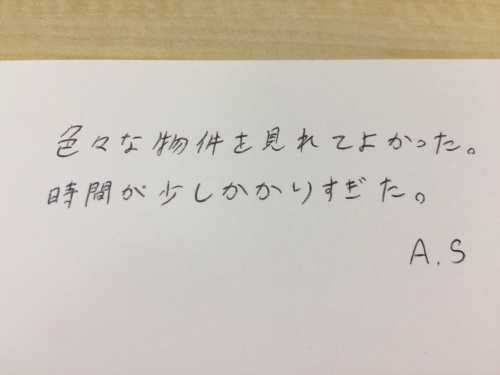 色々な物件を見れてよかった。
時間が少しかかりすぎた。
A.S